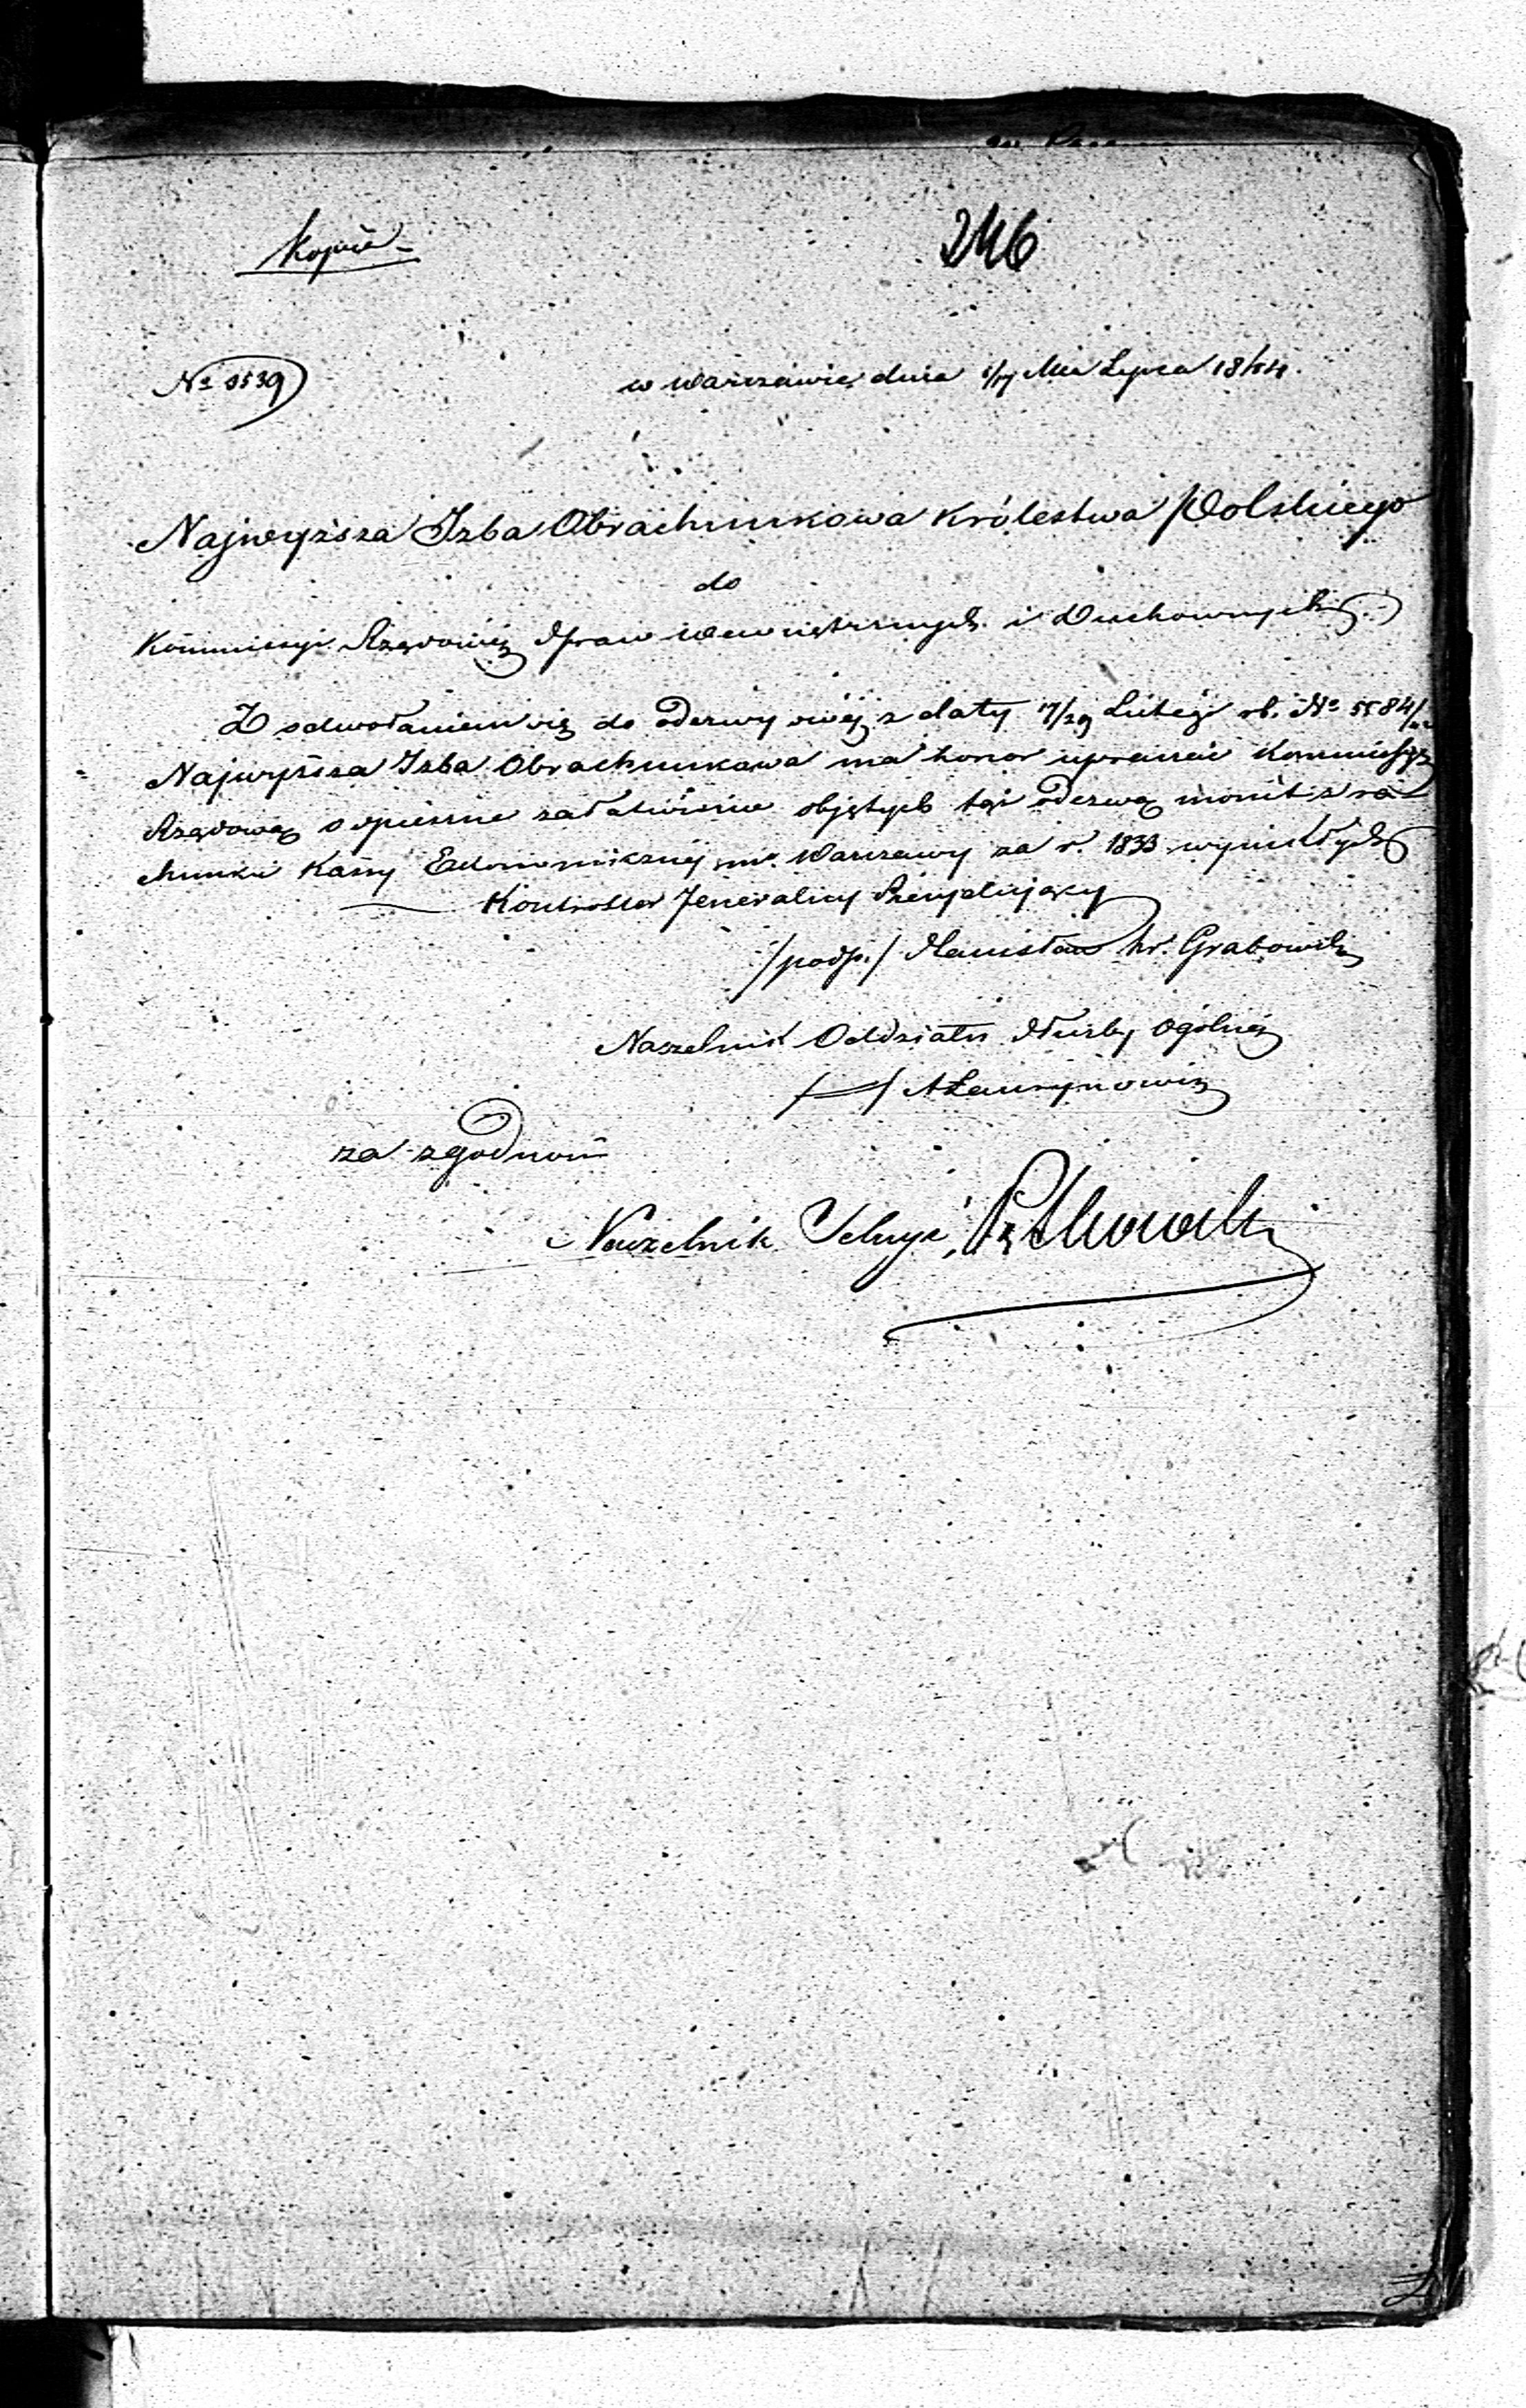 Kopia
246
w Warszawie dnia 5/17 Mca Lipca 1844.
Najwyższa Izba Obrachunkowa Królestwa Polskiego
do
Kommissyi Rządowéj Spraw Wewnętrznych i Duchownych
Z odwołaniem się do odezwy swéj z daty 17/29 Lutego rb. No 5584/
Najwyższa Izba Obrachunkowa ma honor upraszać Kommissyę
Rządową o spieszne załatwienie objętych tąż odezwą monit z ra-
chunku Kassy Ekonomicznéj m. Warszawy za r. 1833 wynikłych
Kontroller Jeneralny Prezydujący
/podp./ Stanisław hr. Grabowski
Naczelnik Oddziału Służby Ogólnéj
za zgodność
Naczelnik Sekcyi